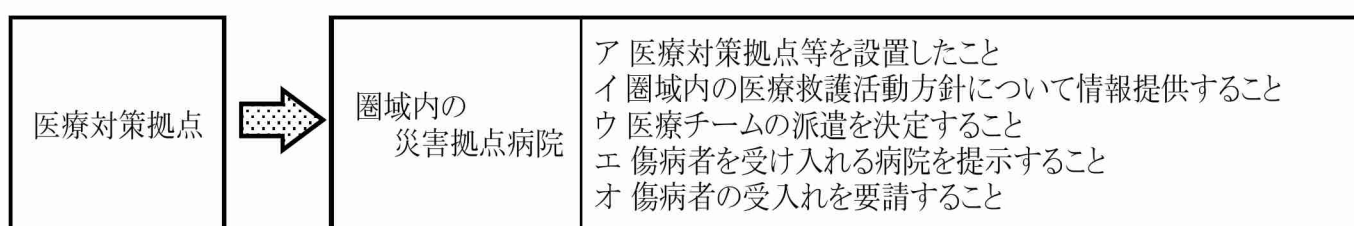 医療対策拠点
圏域内の
災害拠点病院
ア 医療対策拠点等を設置したこと
イ 圏域内の医療救護活動方針について情報提供すること
ウ 医療チームの派遣を決定すること
エ 傷病者を受け入れる病院を提示すること
オ 傷病者の受入れを要請すること